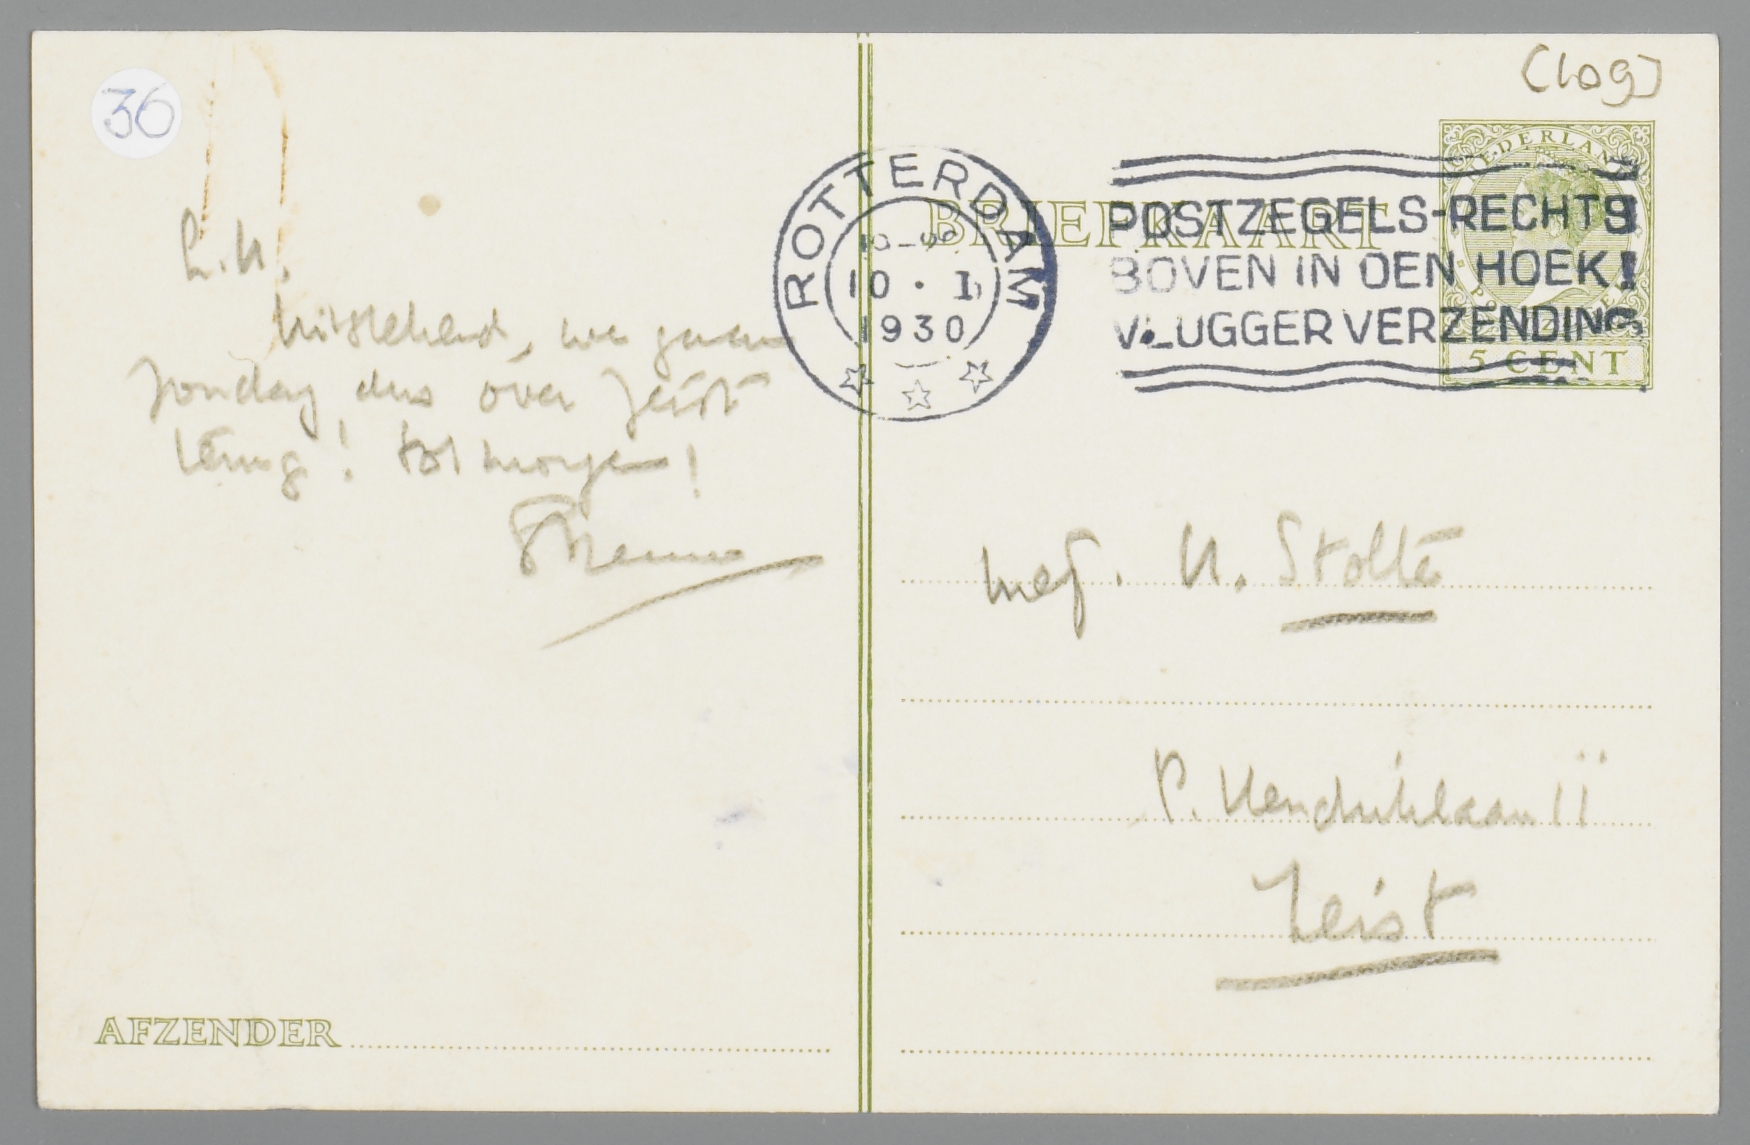 36
L.N.
uitstekend, we gaan
zondag dus over Zeist
terug! tot morgen!
AFZENDER
[109]
NEDERLAND
5 CENT
BRIEFKAART
ROTTERDAM
10 · 1
1930
POSTZEGELS-RECHTS
BOVEN IN DEN HOEK!
VLUGGER VERZENDING
mej. N. Stolte
P. Hendriklaan 11
Zeist